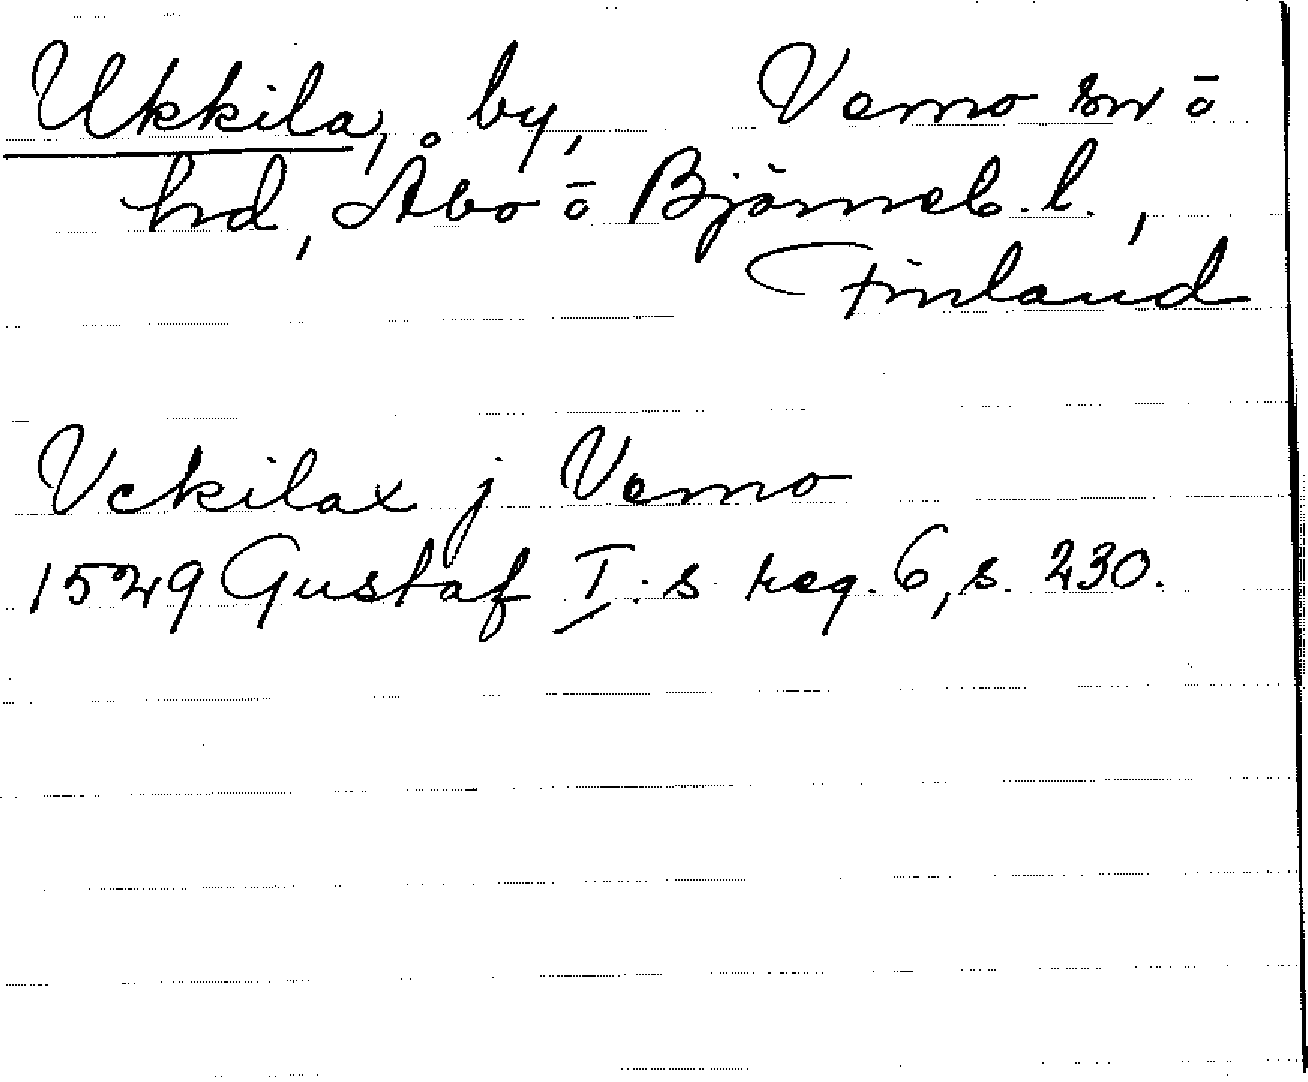 Ukkila, by, Vemo sn ō
hd, Åbo ō Björneb. l.,
Finland
Vckilax j Vemo
1529 Gustaf I:s reg. 6, s. 230.